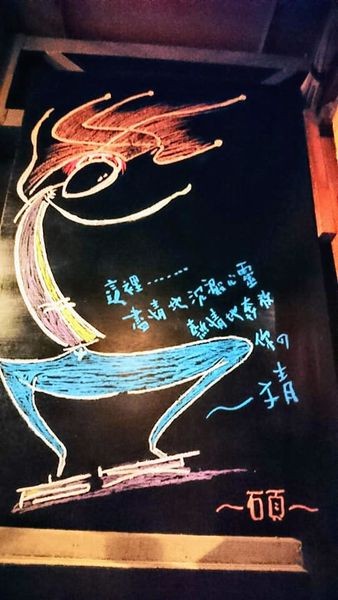 這裡‧‧‧‧‧‧‧
盡情地沉澱心靈
熱情地奔放
你的
~猜
~碩~